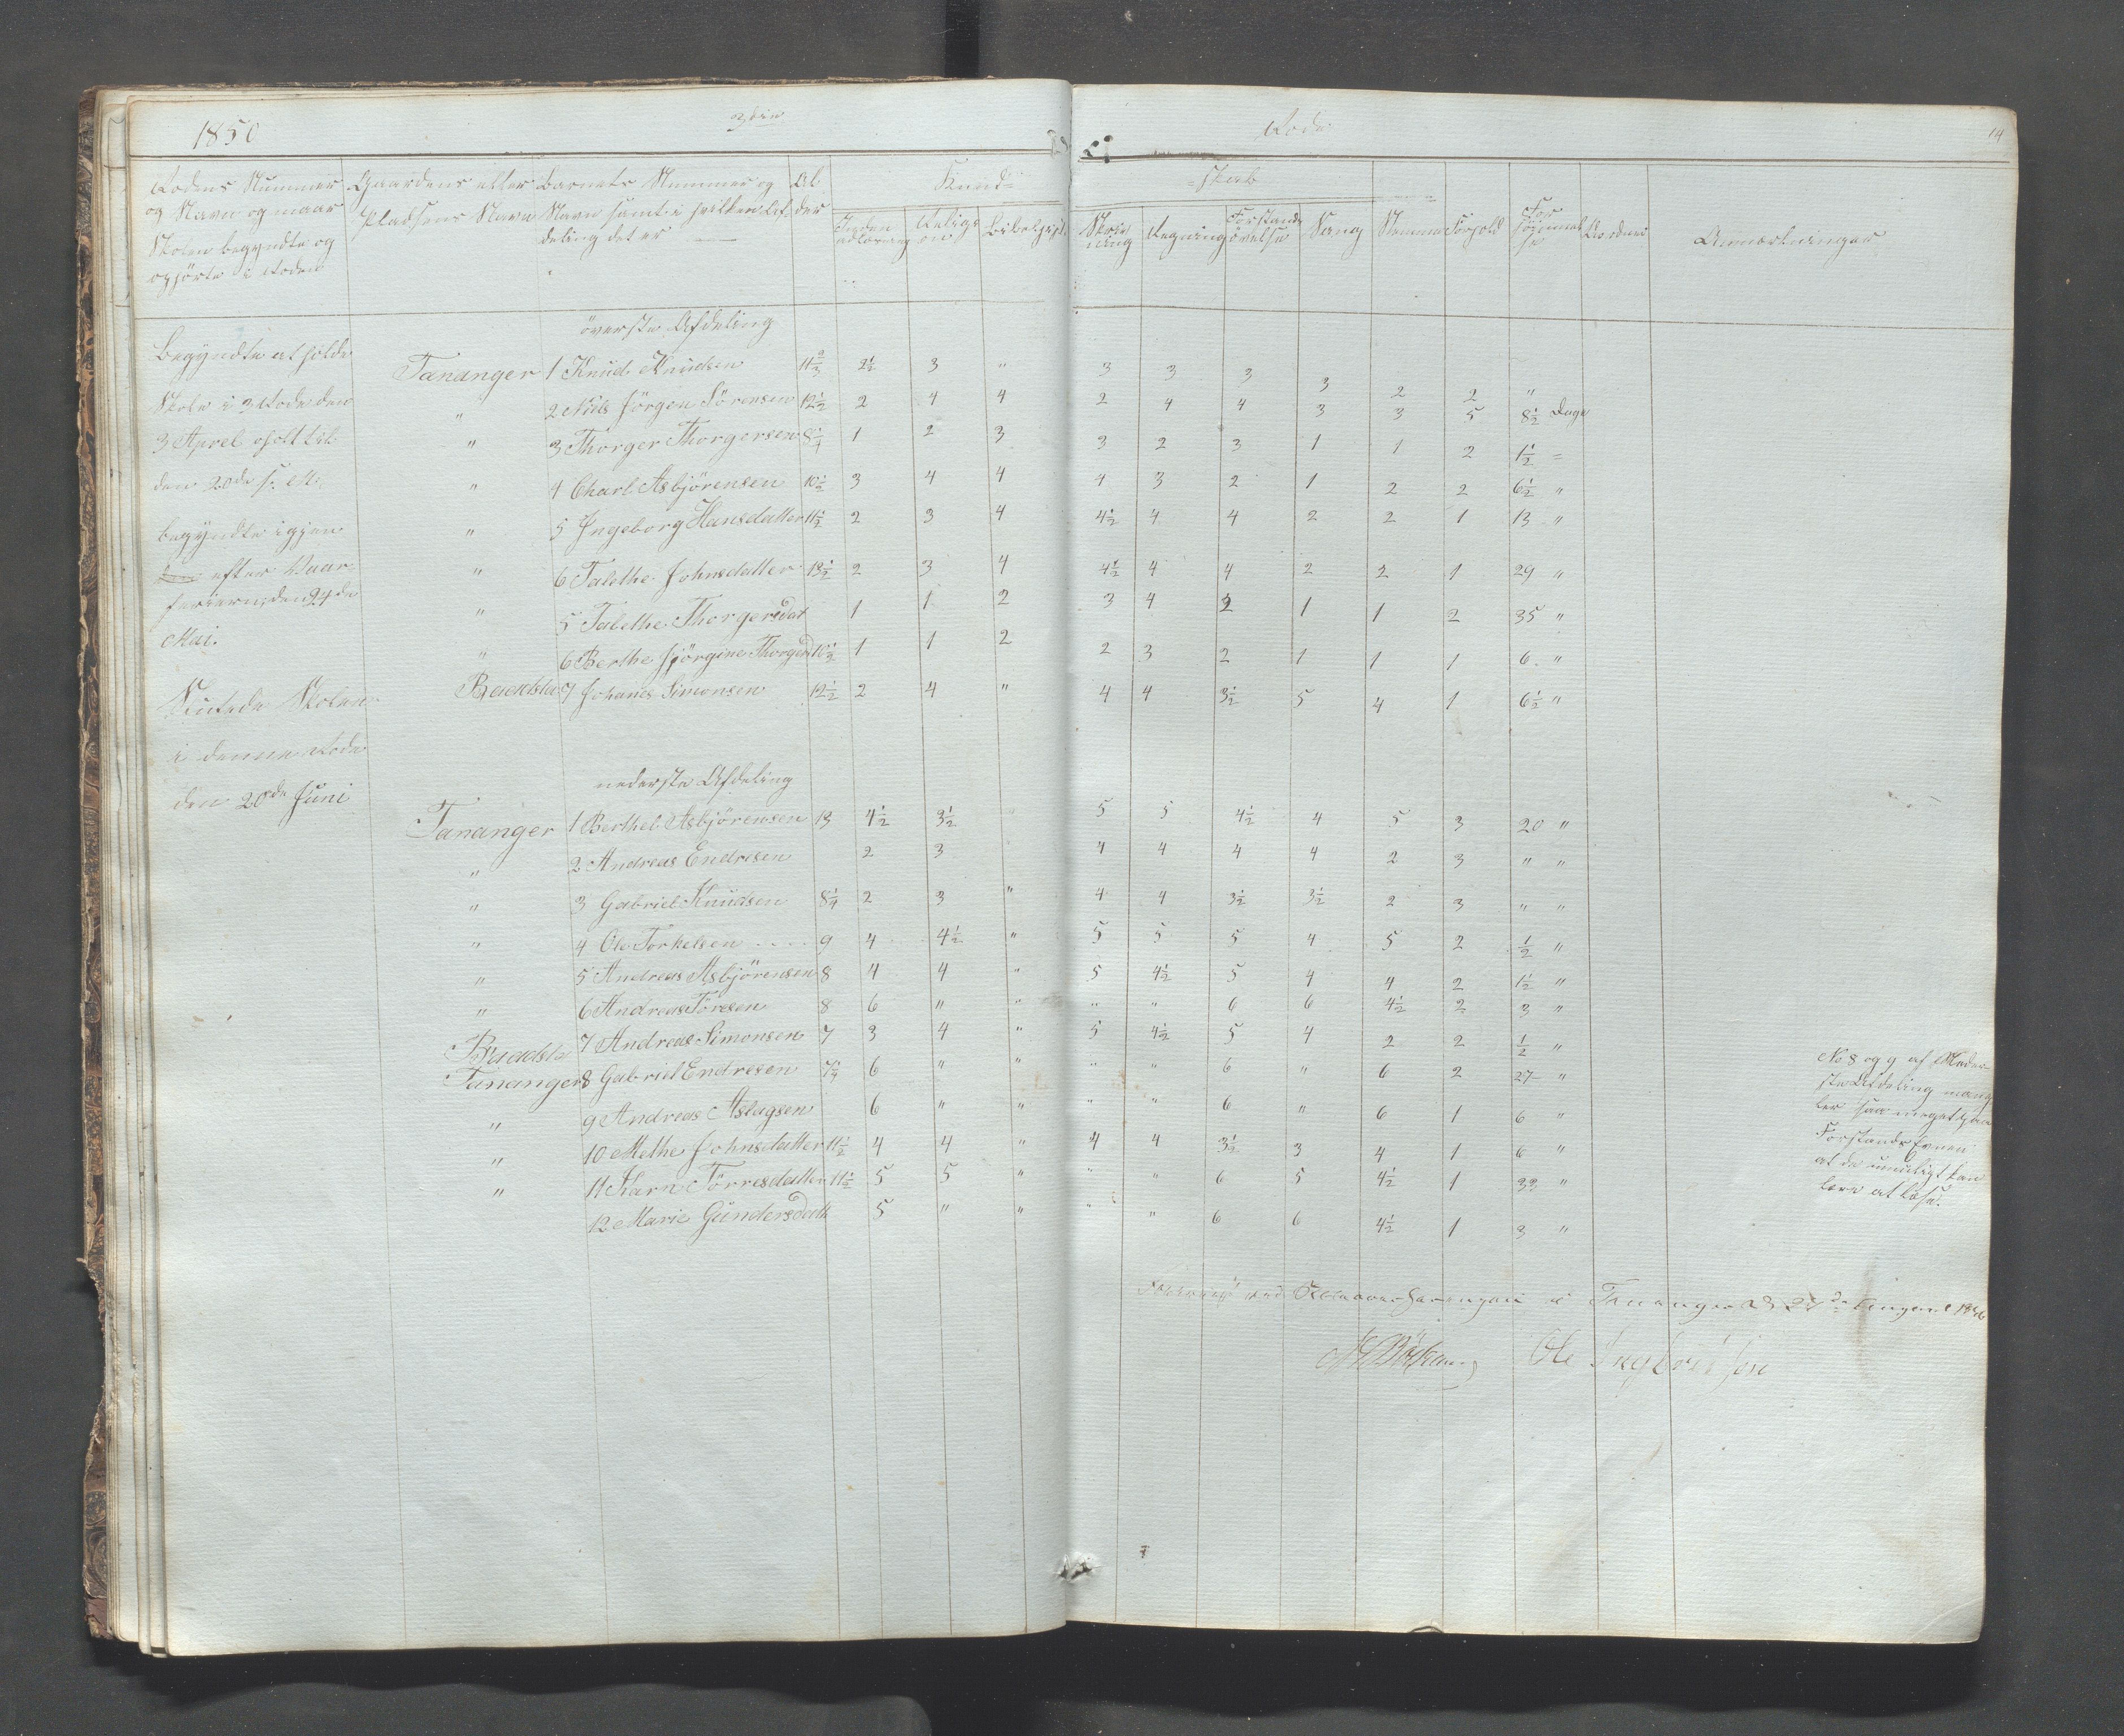 1850 3die Rode 14
Rodens Nummer og Navn og naar Skolen begyndte og ophörte i Roden
Gaardens eller Pladsens Navn
Barnets Nummer og Navn samt i hvilken Afdeling det er
Alder
Kund=
=skab
Inden adlæsning
Religion
Bibelhist.
Skrivning
Regning
Forstandsövelse
Sang
Nemme
Forhold
Forsömmelse
Anmærkninger
överste Afdeling
Begyndte at holde
Skole i 3 Rode den
3 April holdt til
den 20de s. M.
begyndte igjen
efter Vaar-
ferierne den 24de
Mai.
Sluttede Skolen
i denne Rode
den 20de Juni
Tananger 1 Knud Knudsen 11 2/3 2 1/2 3 " 3 3 3 3 2 2 "
" 2 Niels Jörgen Sörensen 12 1/2 2 4 4 2 4 4 3 3 5 8 1/2 Dage
" 3 Thorger Thorgersen 8 1/4 1 2 3 3 2 3 1 1 2 1 1/2 =
" 4 Charl Asbjörensen 10 1/2 3 4 4 4 3 2 1 2 2 6 1/2 "
" 5 Ingeborg Hansdatter 11 1/2 2 3 4 4 1/2 4 4 2 2 1 13 "
" 6 Talethe Johnsdatter 13 1/2 2 3 4 4 1/2 4 4 2 2 1 29 "
" 5 Talethe Thorgersdat 1 1 2 3 4 2 1 1 2 35 "
" 6 Berthe Jörgine Thorgerd 10 1/2 1 1 2 2 3 2 1 1 1 6 "
7 Johanes Simonsen 12 1/2 2 4 " 4 4 3 1/2 5 4 1 6 1/2 "
nederste Afdeling
Tananger 1 Berthel Asbjörensen 13 4 1/2 3 1/2 " 5 5 4 1/2 4 5 3 20 "
" 2 Andreas Endresen 2 3 4 4 4 4 2 3 " "
" 3 Gabriel Knudsen 8 1/4 2 3 " 4 4 3 1/2 3 1/2 2 3 " "
" 4 Ole Torkelsen .... 9 4 4 1/2 " 5 5 5 4 5 2 1/2 "
" 5 Andreas Asbjörensen 8 4 4 " 5 4 1/2 5 4 4 2 1 1/2 "
" 6 Andreas Törresen 8 6 " " " " 6 6 4 1/2 2 3 "
7 Andreas Simonsen 7 3 4 " 5 4 1/2 5 4 2 2 1/2 "
Tananger 8 Gabriel Endresen 7 3/4 6 " " " " 6 " 6 2 27 "
" 9 Andreas Aslagsen 6 " " " " 6 " 6 1 6 "
" 10 Methe Johnsdatter 11 1/2 4 4 " 4 4 3 1/2 3 4 1 6 "
" 11 Karn Törresdatter 11 1/2 5 5 " " " 6 5 4 1/2 1 33 "
12 Marie Gundersdatt 5 " " " " 6 6 4 1/2 1 3 "
No 8 og 9 af Neder-
ste Afdeling mang-
ler saa meget paa
Forstands Evnen
at de umuligt kan
lære at læse.
Tananger
Ole